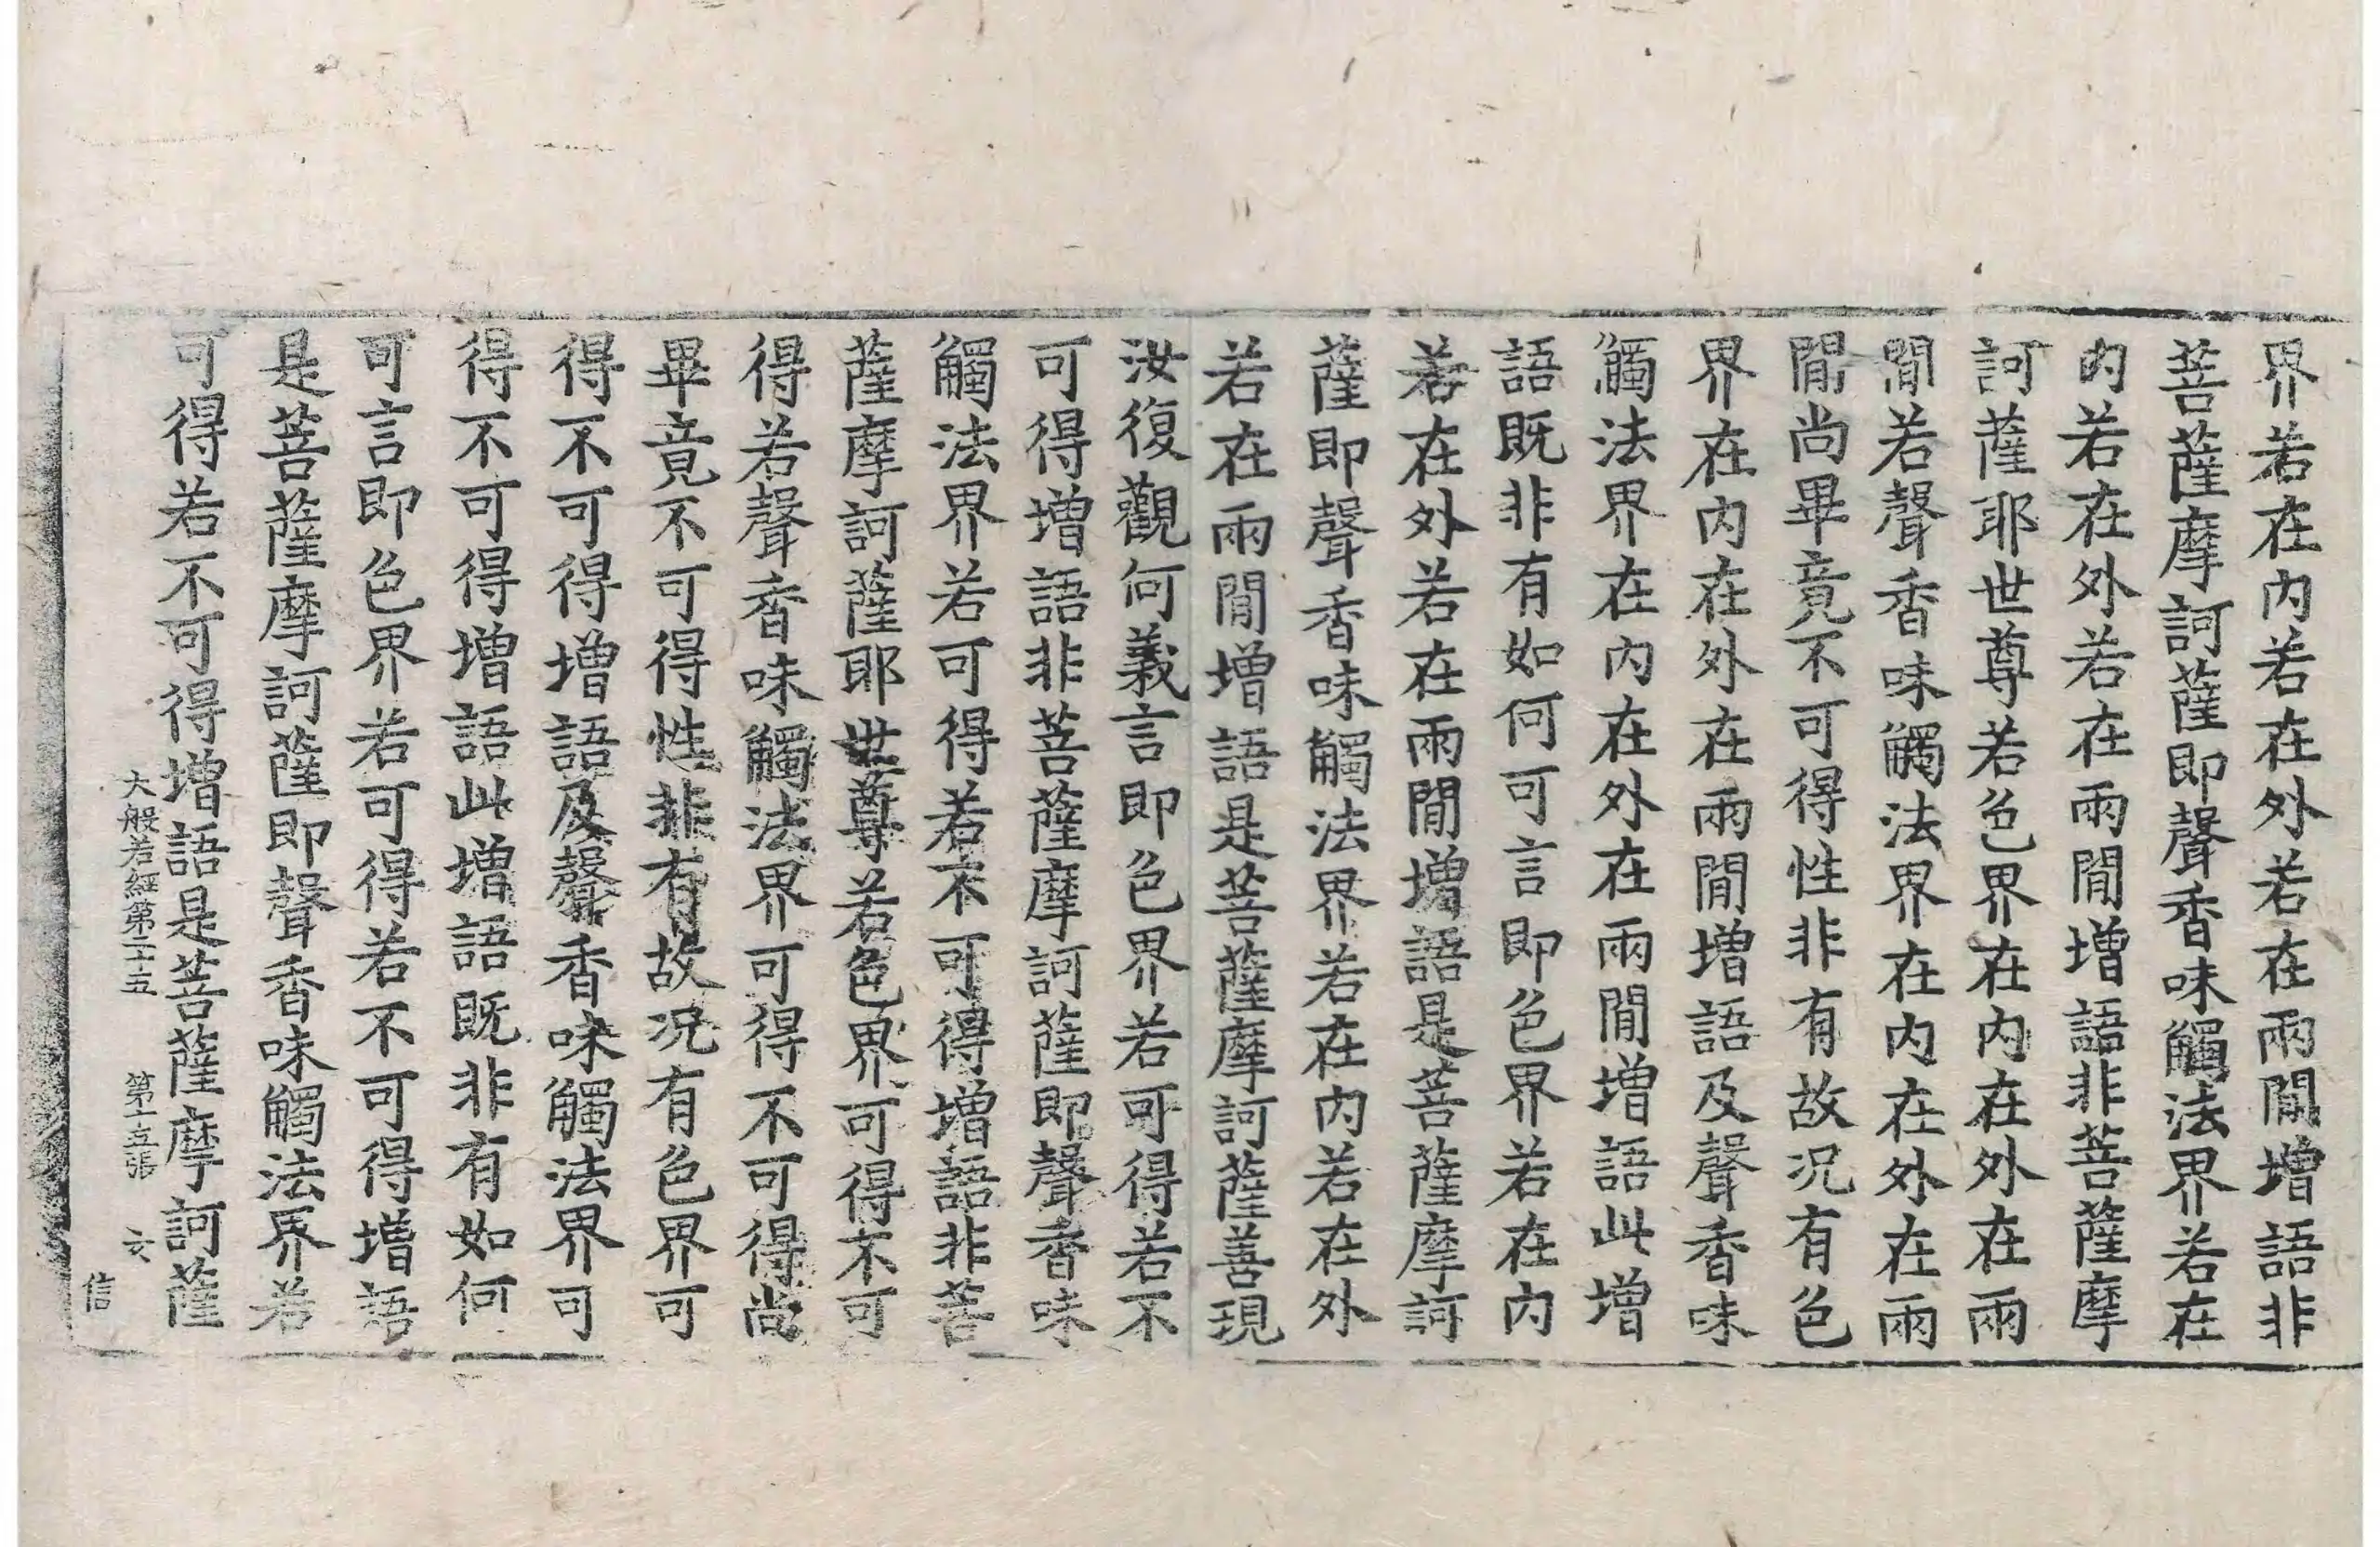 界若在內若在外若在兩閒增語非
菩薩摩訶薩即聲香味觸法界若在
內若在外若在兩閒增語非菩薩摩
訶薩耶世尊若色界在內在外在兩
閒若聲香味觸法界在內在外在兩
閒尚畢竟不可得性非有故況有色
界在內在外在兩閒增語及聲香味
觸法界在內在外在兩閒增語此增
語既非有如何可言即色界若在內
若在外若在兩閒增語是菩薩摩訶
薩即聲香味觸法界若在內若在外
若在兩閒增語是菩薩摩訶薩善現
汝復觀何義言即色界若可得若不
可得增語非菩薩摩訶薩即聲香味
觸法界若可得若不可得增語非菩
薩摩訶薩耶世尊若色界可得不可
得若聲香味觸法界可得不可得尚
畢竟不可得性非有故況有色界可
得不可得增語及聲香味觸法界可
得不可得增語此增語既非有如何
可言即色界若可得若不可得增語
是菩薩摩訶薩即聲香味觸法界若
可得若不可得增語是菩薩摩訶薩
大般若經第二十五 第十五張
信